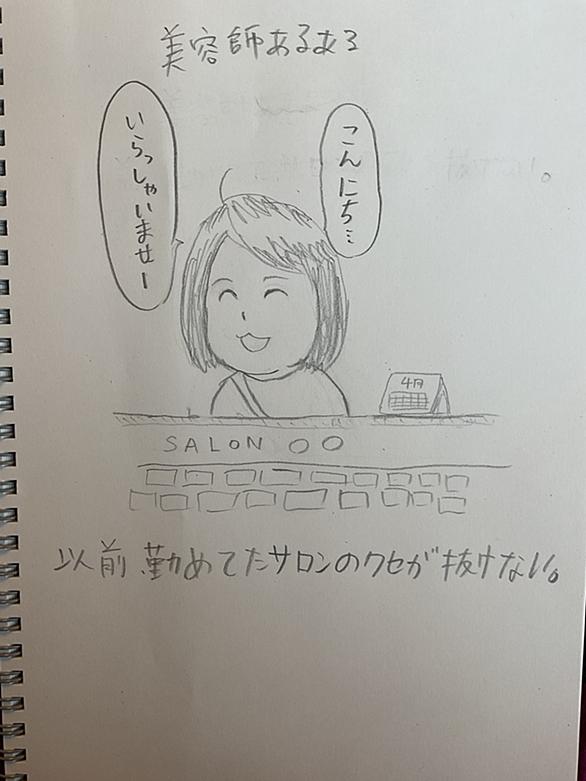 美容師あるある
こんにち…
いらっしゃいませー
4月
SALON ○○
以前勤めてたサロンのクセが抜けない。